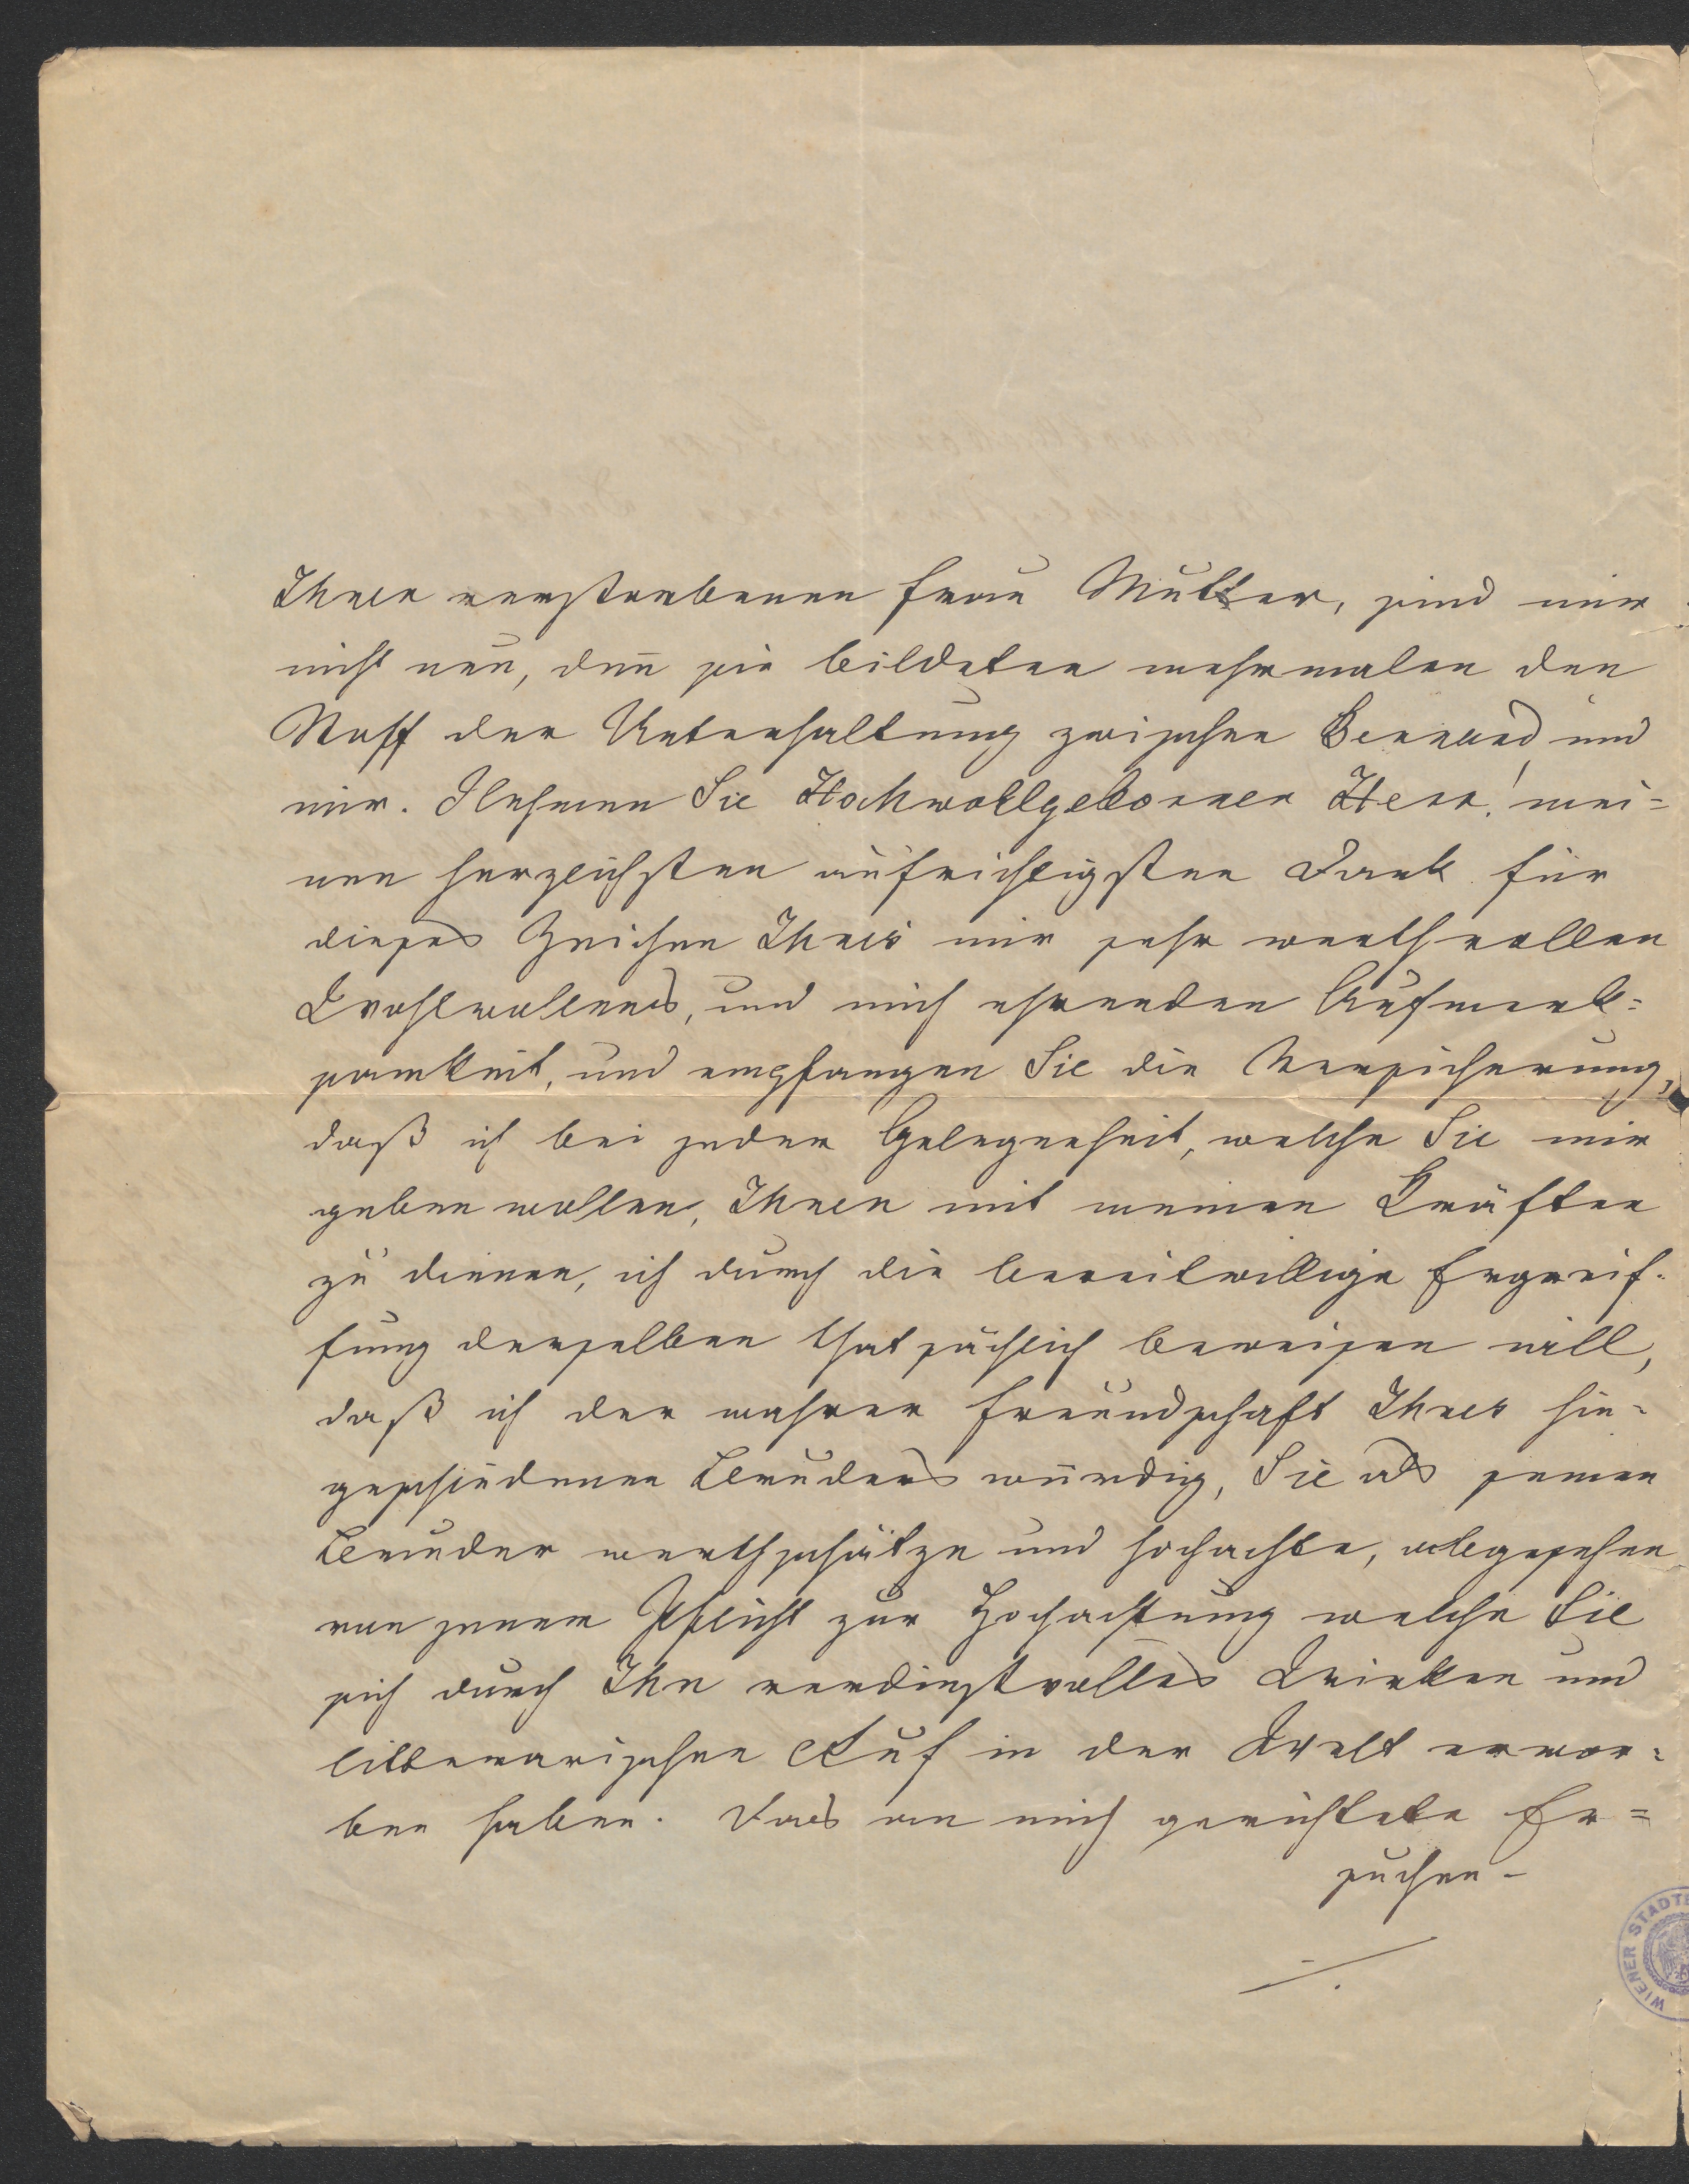 Ihrer verstorbenen Frau Mutter, sind mir
nicht neu, den̄ sie bildeten mehrmalen den
Stoff der Unterhaltung zwischen Bernard und
mir. Nehmen Sie Hochwollgeborner Herr! mei=
nen herzlichsten aufrichtigsten Dank für
dieses Zeichen Ihres mir sehr werthvollen
Wohlwollens, und mich ehrenden Aufmerk=
samkeit, und empfangen Sie die Versicherung,
daß ich bei jeder Gelegenheit, welche Sie mir
geben wollen, Ihnen mit meinen Kräften
zu dienen, ich durch die bereitwillige Ergreif=
fung derselben thatsächlich beweisen will,
daß ich der wahren Freundschaft Ihres hin=
geschiedenen Bruders würdig, Sie als seinen
Bruder werthschätze und hochachte, abgesehen
von jener Pflicht zur Hochachtung welche Sie
sich durch Ihr verdienstvolles Wirken und
litterarischen Ruf in der Welt erwor=
ben haben. Das an mich gerichtete Er=
suchen -
WIENER STADT